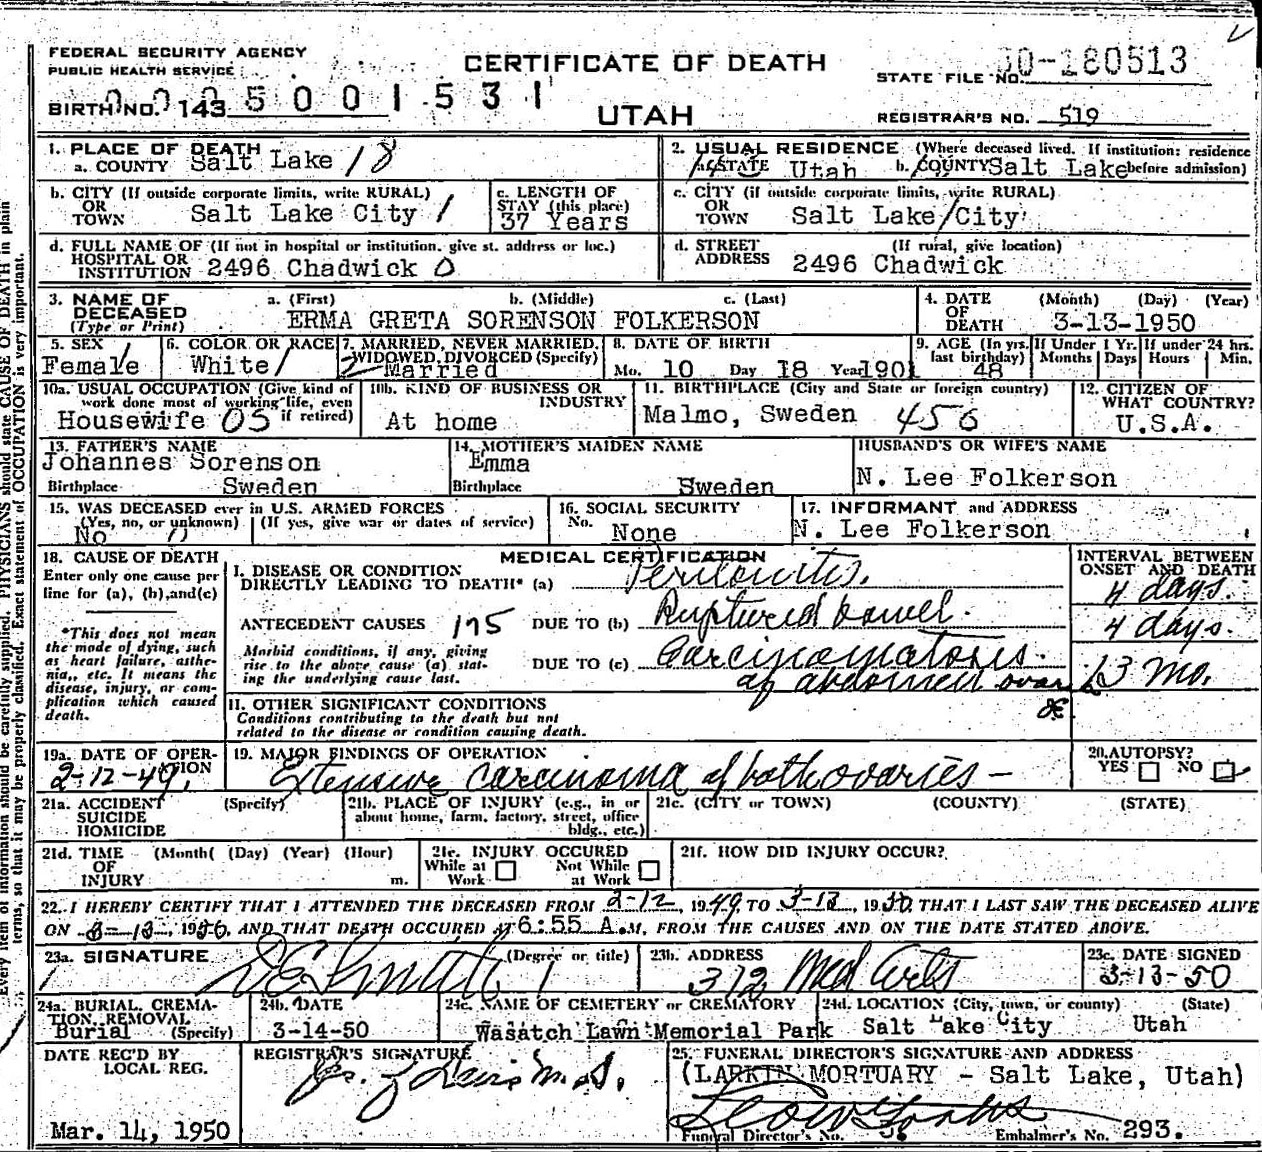 FEDERAL SECURITY AGENCY
PUBLIC HEALTH SERVICE
CERTIFICATE OF DEATH
STATE FILE NO. 50-180513
BIRTH NO. 143 5001531
UTAH
REGISTRAR'S NO. 519
1. PLACE OF DEATH
a. COUNTY Salt Lake 18
2. USUAL RESIDENCE (Where deceased lived. If institution: residence before admission)
a. STATE Utah b. COUNTY Salt Lake
b. CITY (If outside corporate limits, write RURAL)
OR TOWN Salt Lake City 1
c. LENGTH OF STAY (this place)
37 Years
c. CITY (if outside corporate limits, write RURAL)
OR TOWN Salt Lake City
d. FULL NAME OF (If not in hospital or institution, give st. address or loc.)
HOSPITAL OR INSTITUTION 2496 Chadwick 0
d. STREET ADDRESS (If rural, give location)
2496 Chadwick
3. NAME OF DECEASED (Type or Print)
a. (First) b. (Middle) c. (Last)
ERMA GRETA SORENSON FOLKERSON
4. DATE OF DEATH (Month) (Day) (Year)
3-13-1950
5. SEX
Female 1
6. COLOR OR RACE
White 1
7. MARRIED, NEVER MARRIED, WIDOWED, DIVORCED (Specify)
2 Married
8. DATE OF BIRTH
Mo. 10 Day 18 Year 1901
9. AGE (In yrs. last birthday)
48
If Under 1 Yr. Months Days
If under 24 hrs. Hours Min.
10a. USUAL OCCUPATION (Give kind of work done most of working life, even if retired)
Housewife OS
10b. KIND OF BUSINESS OR INDUSTRY
At home
11. BIRTHPLACE (City and State or foreign country)
Malmo, Sweden 456
12. CITIZEN OF WHAT COUNTRY?
U.S.A.
13. FATHER'S NAME
Johannes Sorenson
Birthplace Sweden
14. MOTHER'S MAIDEN NAME
Emma
Birthplace Sweden
HUSBAND'S OR WIFE'S NAME
N. Lee Folkerson
15. WAS DECEASED ever in U.S. ARMED FORCES
(Yes, no, or unknown) (If yes, give war or dates of service)
No 0
16. SOCIAL SECURITY No.
None
17. INFORMANT and ADDRESS
N. Lee Folkerson
18. CAUSE OF DEATH
Enter only one cause per line for (a), (b), and (c)
*This does not mean the mode of dying, such as heart failure, asthenia, etc. It means the disease, injury, or complication which caused death.
MEDICAL CERTIFICATION
INTERVAL BETWEEN ONSET AND DEATH
I. DISEASE OR CONDITION DIRECTLY LEADING TO DEATH* (a) Peritonitis. 4 days.
ANTECEDENT CAUSES 175 DUE TO (b) Ruptured bowel. 4 days.
Morbid conditions, if any, giving rise to the above cause (a) stating the underlying cause last.
DUE TO (c) Carcinomatosis. 13 mo.
of abdomen
II. OTHER SIGNIFICANT CONDITIONS
Conditions contributing to the death but not related to the disease or condition causing death.
19a. DATE OF OPERATION
2-12-49.
19. MAJOR FINDINGS OF OPERATION
Extensive carcinoma of both ovaries -
20. AUTOPSY?
YES NO
21a. ACCIDENT SUICIDE HOMICIDE (Specify)
21b. PLACE OF INJURY (e.g., in or about home, farm, factory, street, office bldg., etc.)
21c. (CITY or TOWN) (COUNTY) (STATE)
21d. TIME OF INJURY (Month( (Day) (Year) (Hour) m.
21e. INJURY OCCURED
While at Work Not While at Work
21f. HOW DID INJURY OCCUR?
22. I HEREBY CERTIFY THAT I ATTENDED THE DECEASED FROM 2-12, 1949 TO 3-13, 1950, THAT I LAST SAW THE DECEASED ALIVE
ON 3-13, 1950, AND THAT DEATH OCCURED AT 6:55 A.M, FROM THE CAUSES AND ON THE DATE STATED ABOVE.
23a. SIGNATURE (Degree or title)
23b. ADDRESS
312 Med Arts
23c. DATE SIGNED
3-13-50
24a. BURIAL, CREMATION, REMOVAL (Specify)
Burial
24b. DATE
3-14-50
24c. NAME OF CEMETERY or CREMATORY
Wasatch Lawn Memorial Park
24d. LOCATION (City, town, or county) (State)
Salt Lake City Utah
DATE REC'D BY LOCAL REG.
Mar. 14, 1950
REGISTRAR'S SIGNATURE
25. FUNERAL DIRECTOR'S SIGNATURE AND ADDRESS
(LARKIN MORTUARY - Salt Lake, Utah)
Funeral Director's No. Embalmer's No. 293.
Every item of information should be carefully supplied. PHYSICIANS should state CAUSE OF DEATH in plain
terms, so that it may be properly classified. Exact statement of OCCUPATION is very important.